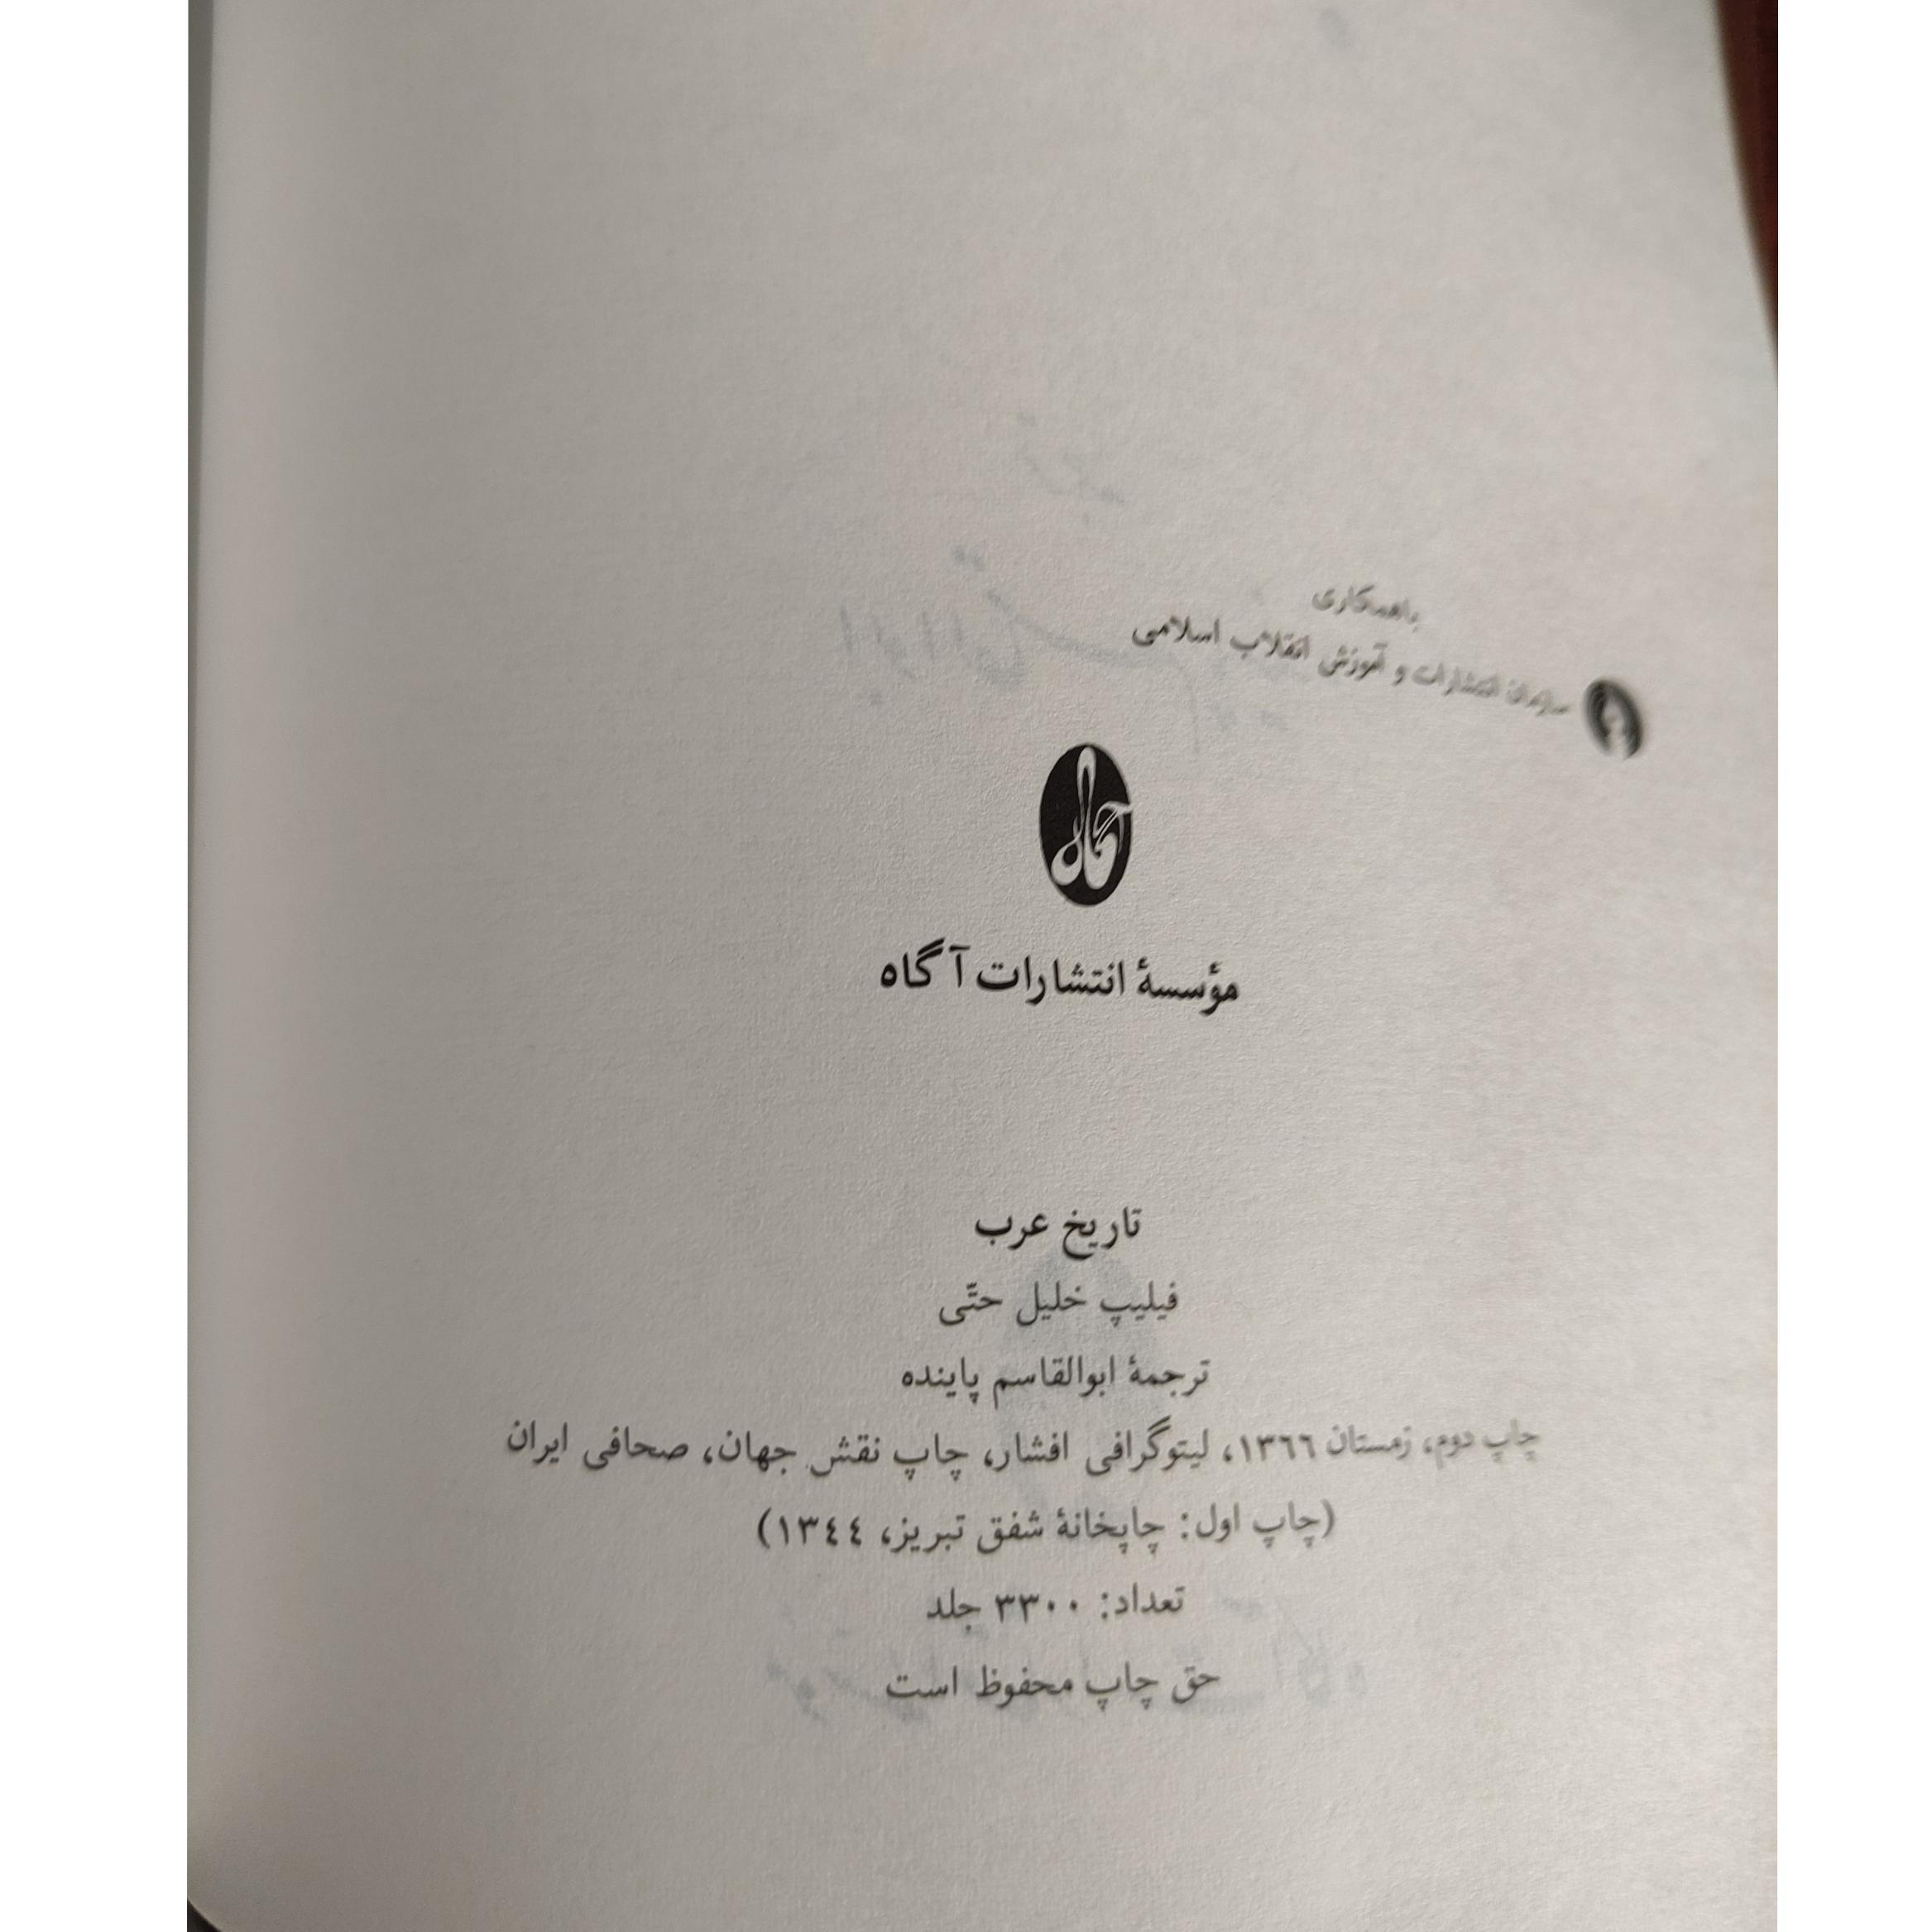 باهمکاری
سازمان انتشارات و آموزش انقلاب اسلامی
آگاه
مؤسسهٔ انتشارات آگاه
تاریخ عرب
فیلیپ خلیل حتّی
ترجمهٔ ابوالقاسم پاینده
چاپ دوم، زمستان ١٣٦٦، لیتوگرافی افشار، چاپ نقش جهان، صحافی ایران
(چاپ اول: چاپخانهٔ شفق تبریز، ١٣٤٤)
تعداد: ٣٣٠٠ جلد
حق چاپ محفوظ است